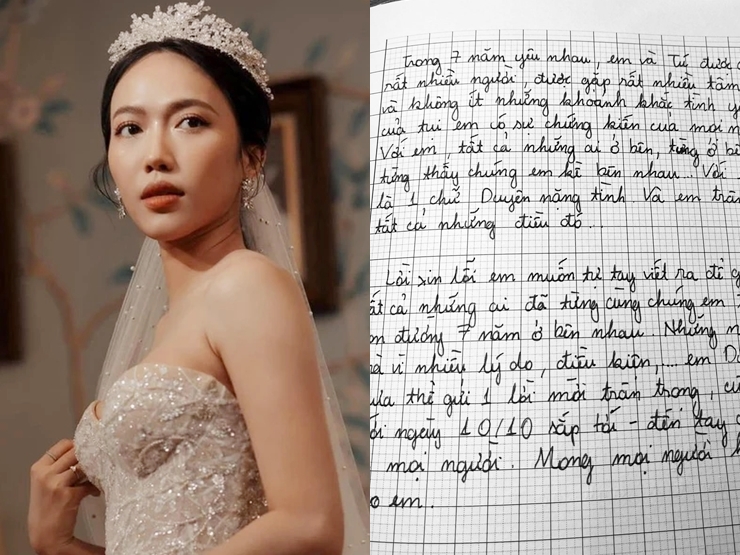 Trong 7 năm yêu nhau, em và Tú được
rất nhiều người, được gặp rất nhiều
và không ít những khoảnh khắc tình
của tui em có sự chứng kiến của mọi
Với em, tất cả những ai ở bên, từng ở
từng thấy chúng em kề bên nhau... Với
là 1 chữ Duyên nặng tình. Và em
tất cả những điều đó...
Lời xin lỗi em muốn tự tay viết ra để
tất cả những ai đã từng cùng chúng em
đường 7 năm ở bên nhau. Những
vì nhiều lý do, điều kiện,... em
thể gửi 1 lời mời trân trọng,
ngày 10/10 sắp tới - đến tay
mọi người. Mong mọi người
em.